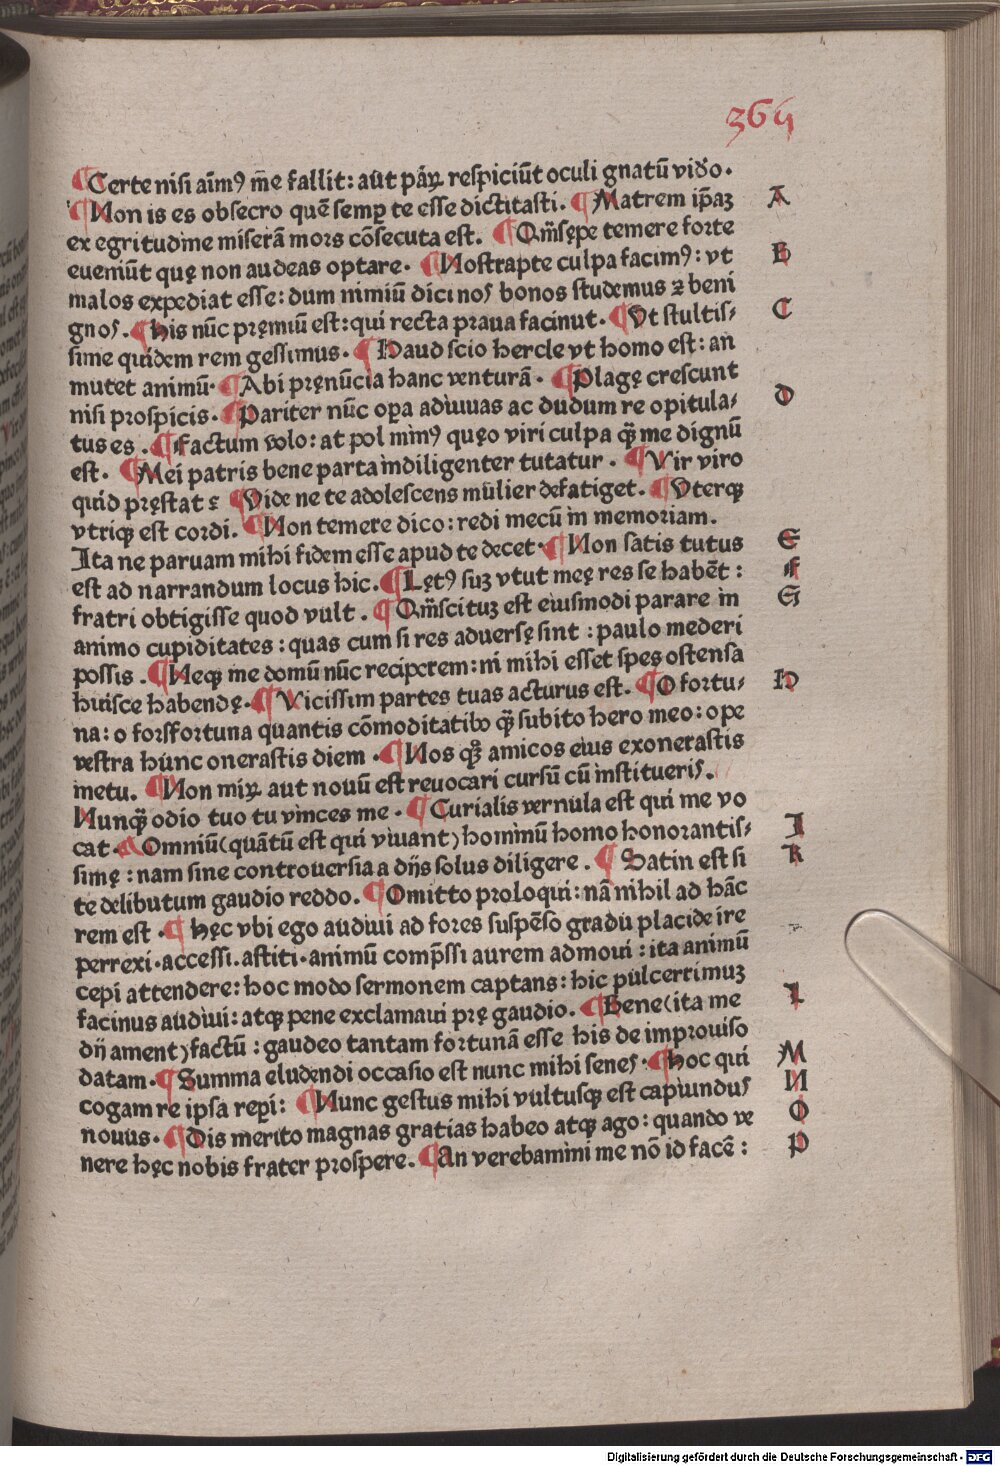 364
¶ Certe nisi aīmꝰ m̄e fallit: aūt pāꝝ respiciūt oculi gnatū vid̄o.
¶ Non is es obsecro quē semꝑ te esse dictitasti. ¶ Matrem ip̄aꝫ A
ex egritudine miserā mors cōsecuta est. ¶ Qm̄sępe temere forte
eueniūt quę non audeas optare. ¶ Nostrapte culpa facimꝰ: vt B
malos expediat esse: dum nimiū dici nos bonos studemus ⁊ beni
gnos. ¶ His nūc pręmiū est: qui recta praua faciunt. ¶ Vt stultis⸗ C
sime quidem rem gessimus. ¶ Haud scio hercle vt homo est: an
mutet animū. ¶ Abi pręnūcia hanc venturā. ¶ Plagę crescunt
nisi prospicis. ¶ Pariter nūc oꝑa adiuuas ac dudum re opitula⸗ D
tus es. ¶ Factum volo: at pol minꝰ quęo viri culpa q̄ꝫ me dignū
est. ¶ Mei patris bene parta indiligenter tutatur. ¶ Vir viro
quid pręstat? ¶ Vide ne te adolescens mulier defatiget. ¶ Vterqꝫ
vtriqꝫ est cordi. ¶ Non temere dico: redi mecū in memoriam.
Ita ne paruam mihi fidem esse apud te decet. ¶ Non satis tutus E
est ad narrandum locus hic. ¶ Lętꝰ suꝫ vtut meę res se habēt: F
fratri obtigisse quod vult. ¶ Qm̄scituꝫ est eiusmodi parare in G
animo cupiditates: quas cum si res aduersę sint: paulo mederi
possis. ¶ Neqꝫ me domū nūc reciperem: ni mihi esset spes ostensa
huisce habendę. ¶ Vicissim partes tuas acturus est. ¶ O fortu⸗ H
na: o forsfortuna quantis cōmoditatibꝰ q̄ꝫ subito hero meo: ope
vestra hunc onerastis diem. ¶ Nos qꝫ amicos eius exonerastis
metu. ¶ Non miꝝ aut nouū est reuocari cursū cū institueris.
Nunq̄ꝫ odio tuo tu vinces me. ¶ Curialis vernula est qui me vo
cat. ¶ Omniū (quātū est qui viuant) hominū homo honorantis⸗ I
simę: nam sine controuersia a dijs solus diligere. ¶ Satin est si K
te delibutum gaudio reddo. ¶ Omitto proloqui: nā nihil ad hāc
rem est. ¶ Hęc vbi ego audiui ad fores suspēso gradu placide ire
perrexi. accessi. astiti. animū comp̄ssi aurem admoui: ita animū
cepi attendere: hoc modo sermonem captans: hic pulcerrimuꝫ
facinus audiui: atqꝫ pene exclamaui prę gaudio. ¶ Bene (ita me L
dij ament) factū: gaudeo tantam fortunā esse his de improuiso
datam. ¶ Summa eludendi occasio est nunc mihi senes. ¶ Hoc qui M
cogam re ipsa reꝑi: ¶ Nunc gestus mihi vultusqꝫ est capiundus N
nouus. ¶ Dis merito magnas gratias habeo atqꝫ ago: quando ve O
nere hęc nobis frater prospere. ¶ An verebamini me nō id facē: P
Digitalisierung gefördert durch die Deutsche Forschungsgemeinschaft - DFG